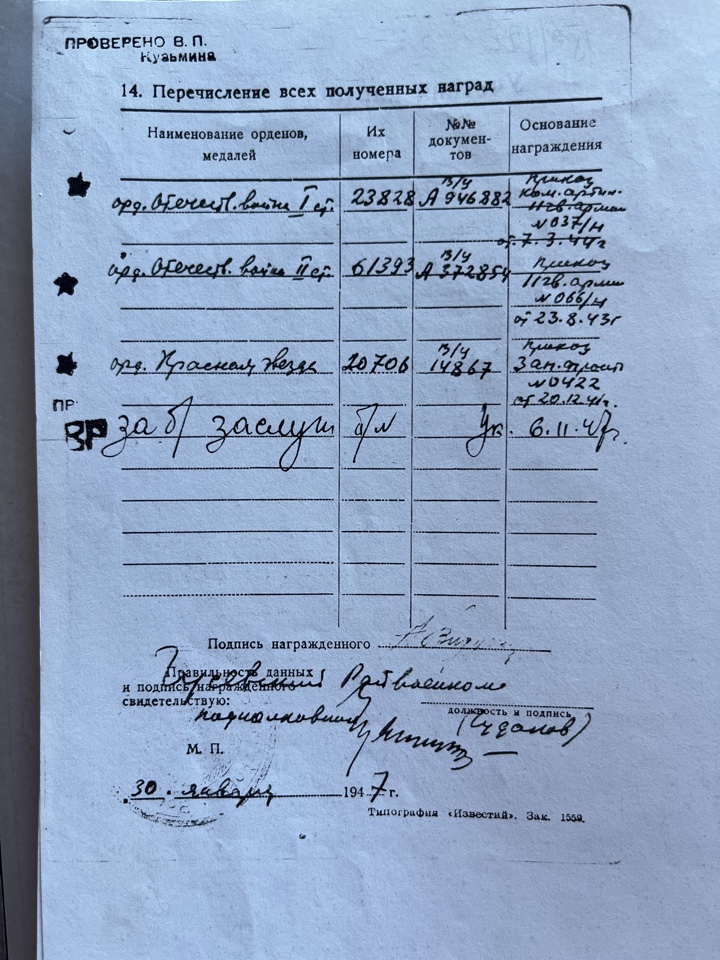 ПРОВЕРЕНО В. П.
Кузьмина
14. Перечисление всех полученных наград
Наименование орденов, медалей
Их номера
№№ документов
Основание награждения
орд. Отечеств. войны I ст. 23828 в/ч А 946882 Приказ
Ком. артил.
11 гв. армии
№ 037/н
от 7.3.44 г
орд. Отечеств. войны II ст. 61393 в/ч А 372854 Приказ
11 гв. армии
№ 066/н
от 23.8.43 г
орд. Красная звезда 20706 в/ч 14867 Приказ
Зап. фронт
№ 0422
от 20.12.41 г.
ПР
ВР за б/ заслуги б/н Ук. 6.11.47 г.
Подпись награжденного
Правильность данных
и подпись награжденного
свидетельствую:
Райвоенком
подполковник
должность и подпись
(Чудаков)
М. П.
30 января 1947 г.
Типография «Известий». Зак. 1559.